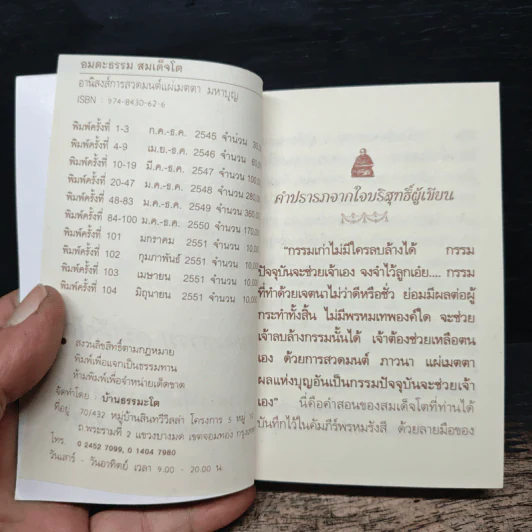 อมตะธรรม สมเด็จโต
อานิสงส์การสวดมนต์แผ่เมตตา มหาบุญ
ISBN : 974-8430-62-6
พิมพ์ครั้งที่ 1-3 ก.ค.-ธ.ค. 2545 จำนวน
พิมพ์ครั้งที่ 4-9 เม.ย.-ธ.ค. 2546 จำนวน
พิมพ์ครั้งที่ 10-19 มี.ค.-ธ.ค. 2547 จำนวน 100,
พิมพ์ครั้งที่ 20-47 ม.ค.-ธ.ค. 2548 จำนวน 280,
พิมพ์ครั้งที่ 48-83 ม.ค.-ธ.ค. 2549 จำนวน 360,
พิมพ์ครั้งที่ 84-100 ม.ค.-ธ.ค. 2550 จำนวน 170,
พิมพ์ครั้งที่ 101 มกราคม 2551 จำนวน 10,
พิมพ์ครั้งที่ 102 กุมภาพันธ์ 2551 จำนวน 10,
พิมพ์ครั้งที่ 103 เมษายน 2551 จำนวน 10,
พิมพ์ครั้งที่ 104 มิถุนายน 2551 จำนวน 10,
สงวนลิขสิทธิ์ตามกฎหมาย
พิมพ์เพื่อแจกเป็นธรรมทาน
ห้ามพิมพ์เพื่อจำหน่ายเด็ดขาด
จัดทำโดย : บ้านธรรมะโต
ที่อยู่ 70/432 หมู่บ้านลินทรีวิลล่า โครงการ 5 หมู่
ถ.พระรามที่ 2 แขวงบางมด เขตจอมทอง กรุงเทพ
โทร. 0 2452 7099, 0 1404 7980
วันเสาร์ - วันอาทิตย์ เวลา 9.00 - 20.00 น.
คำปรารภจากใจบริสุทธิ์ผู้เขียน
"กรรมเก่าไม่มีใครลบล้างได้ กรรม
ปัจจุบันจะช่วยเจ้าเอง จงจำไว้ลูกเอ๋ย.... กรรม
ที่ทำด้วยเจตนาไม่ว่าดีหรือชั่ว ย่อมมีผลต่อผู้
กระทำทั้งสิ้น ไม่มีพรหมเทพองค์ใด จะช่วย
เจ้าลบล้างกรรมนั้นได้ เจ้าต้องช่วยเหลือตน
เอง ด้วยการสวดมนต์ ภาวนา แผ่เมตตา
ผลแห่งบุญอันเป็นกรรมปัจจุบันจะช่วยเจ้า
เอง" นี่คือคำสอนของสมเด็จโตที่ท่านได้
บันทึกไว้ในคัมภีร์พรหมรังสี ด้วยลายมือของ